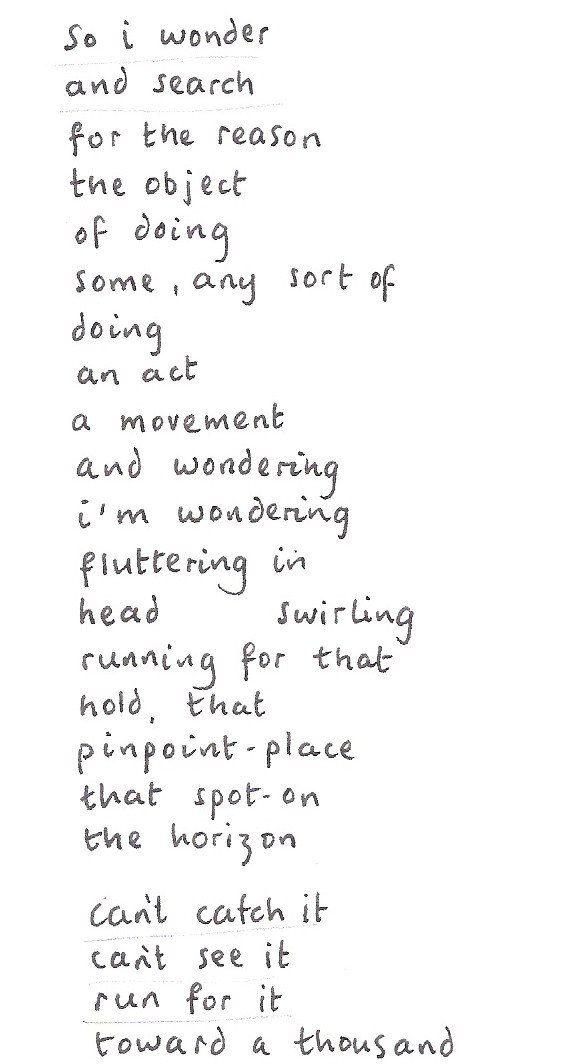 so i wonder
and search
for the reason
the object
of doing
some, any sort of
doing
an act
a movement
and wondering
i'm wondering
fluttering in
head swirling
running for that
hold, that
pinpoint-place
that spot-on
the horizon
can't catch it
can't see it
run for it
toward a thousand